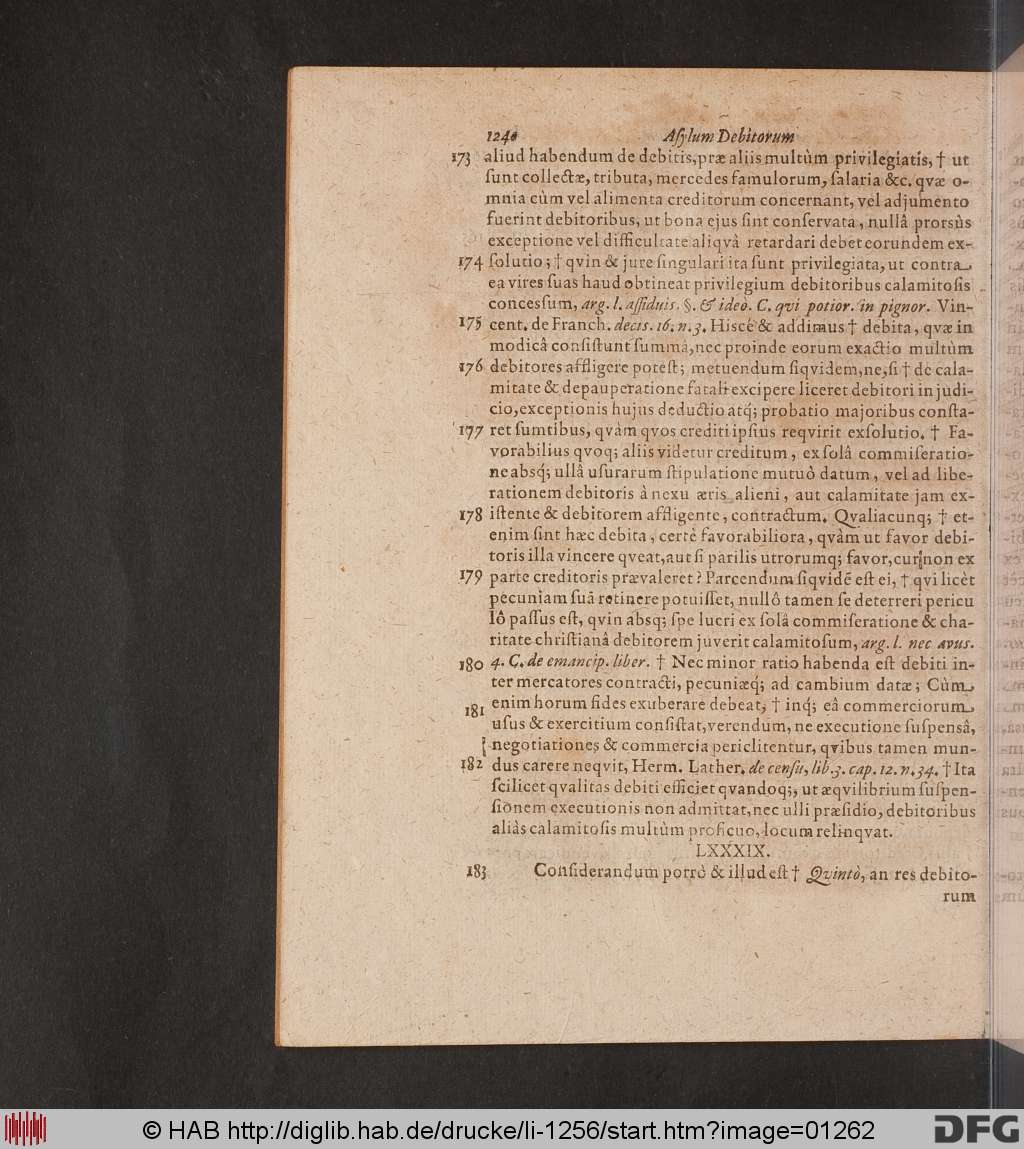 1240 Aſylum Debitorum
173 aliud habendum de debitis, præ aliis multùm privilegiatis, † ut
ſunt collectæ, tributa, mercedes famulorum, ſalaria &c. qvæ o-
mnia cùm vel alimenta creditorum concernant, vel adjumento
fuerint debitoribus, ut bona ejus ſint conſervata, nullâ prorsùs
exceptione vel difficultate aliqvâ retardari debet eorundem ex-
174 ſolutio; † qvin & jure ſingulari ita ſunt privilegiata, ut contra
ea vires ſuas haud obtineat privilegium debitoribus calamitoſis
conceſſum, arg. l. aſſiduis. §. & ideò. C. qvi potior. in pignor. Vin-
175 cent. de Franch. decis. 16. n. 3. Hiscè & addimus † debita, qvæ in
modicâ conſiſtunt ſummâ, nec proinde eorum exactio multùm
176 debitores affligere poteſt; metuendum ſiqvidem, ne, ſi † de cala-
mitate & depauperatione fatali excipere liceret debitori in judi-
cio, exceptionis hujus deductio atq; probatio majoribus conſta-
177 ret ſumtibus, qvàm qvos crediti ipſius reqvirit exſolutio. † Fa-
vorabilius qvoq; aliis videtur creditum, ex ſolâ commiſeratio-
ne absq; ullâ uſurarum ſtipulatione mutuò datum, vel ad libe-
rationem debitoris à nexu æris alieni, aut calamitate jam ex-
178 iſtente & debitorem affligente, contractum. Qvaliacunq; † et-
enim ſint hæc debita, certè favorabiliora, qvàm ut favor debi-
toris illa vincere qveat, aut ſi parilis utrorumq; favor, cur non ex
179 parte creditoris prævaleret? Parcendum ſiqvidẽ eſt ei, † qvi licèt
pecuniam ſuã retinere potuiſſet, nullô tamen ſe deterreri pericu
lô paſſus eſt, qvin absq; ſpe lucri ex ſolâ commiſeratione & cha-
ritate chriſtianâ debitorem juverit calamitoſum, arg. l. nec avus.
180 4. C. de emancip. liber. † Nec minor ratio habenda eſt debiti in-
ter mercatores contracti, pecuniæq; ad cambium datæ; Cùm
181 enim horum fides exuberare debeat, † inq; eâ commerciorum
uſus & exercitium conſiſtat, verendum, ne executione ſuſpensâ,
negotiationes & commercia periclitentur, qvibus tamen mun-
182 dus carere neqvit, Herm. Lather. de cenſu, lib. 3. cap. 12. n. 34. † Ita
ſcilicet qvalitas debiti efficiet qvandoq;, ut æqvilibrium ſuſpen-
ſionem executionis non admittat, nec ulli præſidio, debitoribus
aliàs calamitoſis multùm proficuo, locum relinqvat.
LXXXIX.
183 Conſiderandum porrò & illud eſt † Qvintò, an res debito-
rum
© HAB http://diglib.hab.de/drucke/li-1256/start.htm?image=01262
DFG